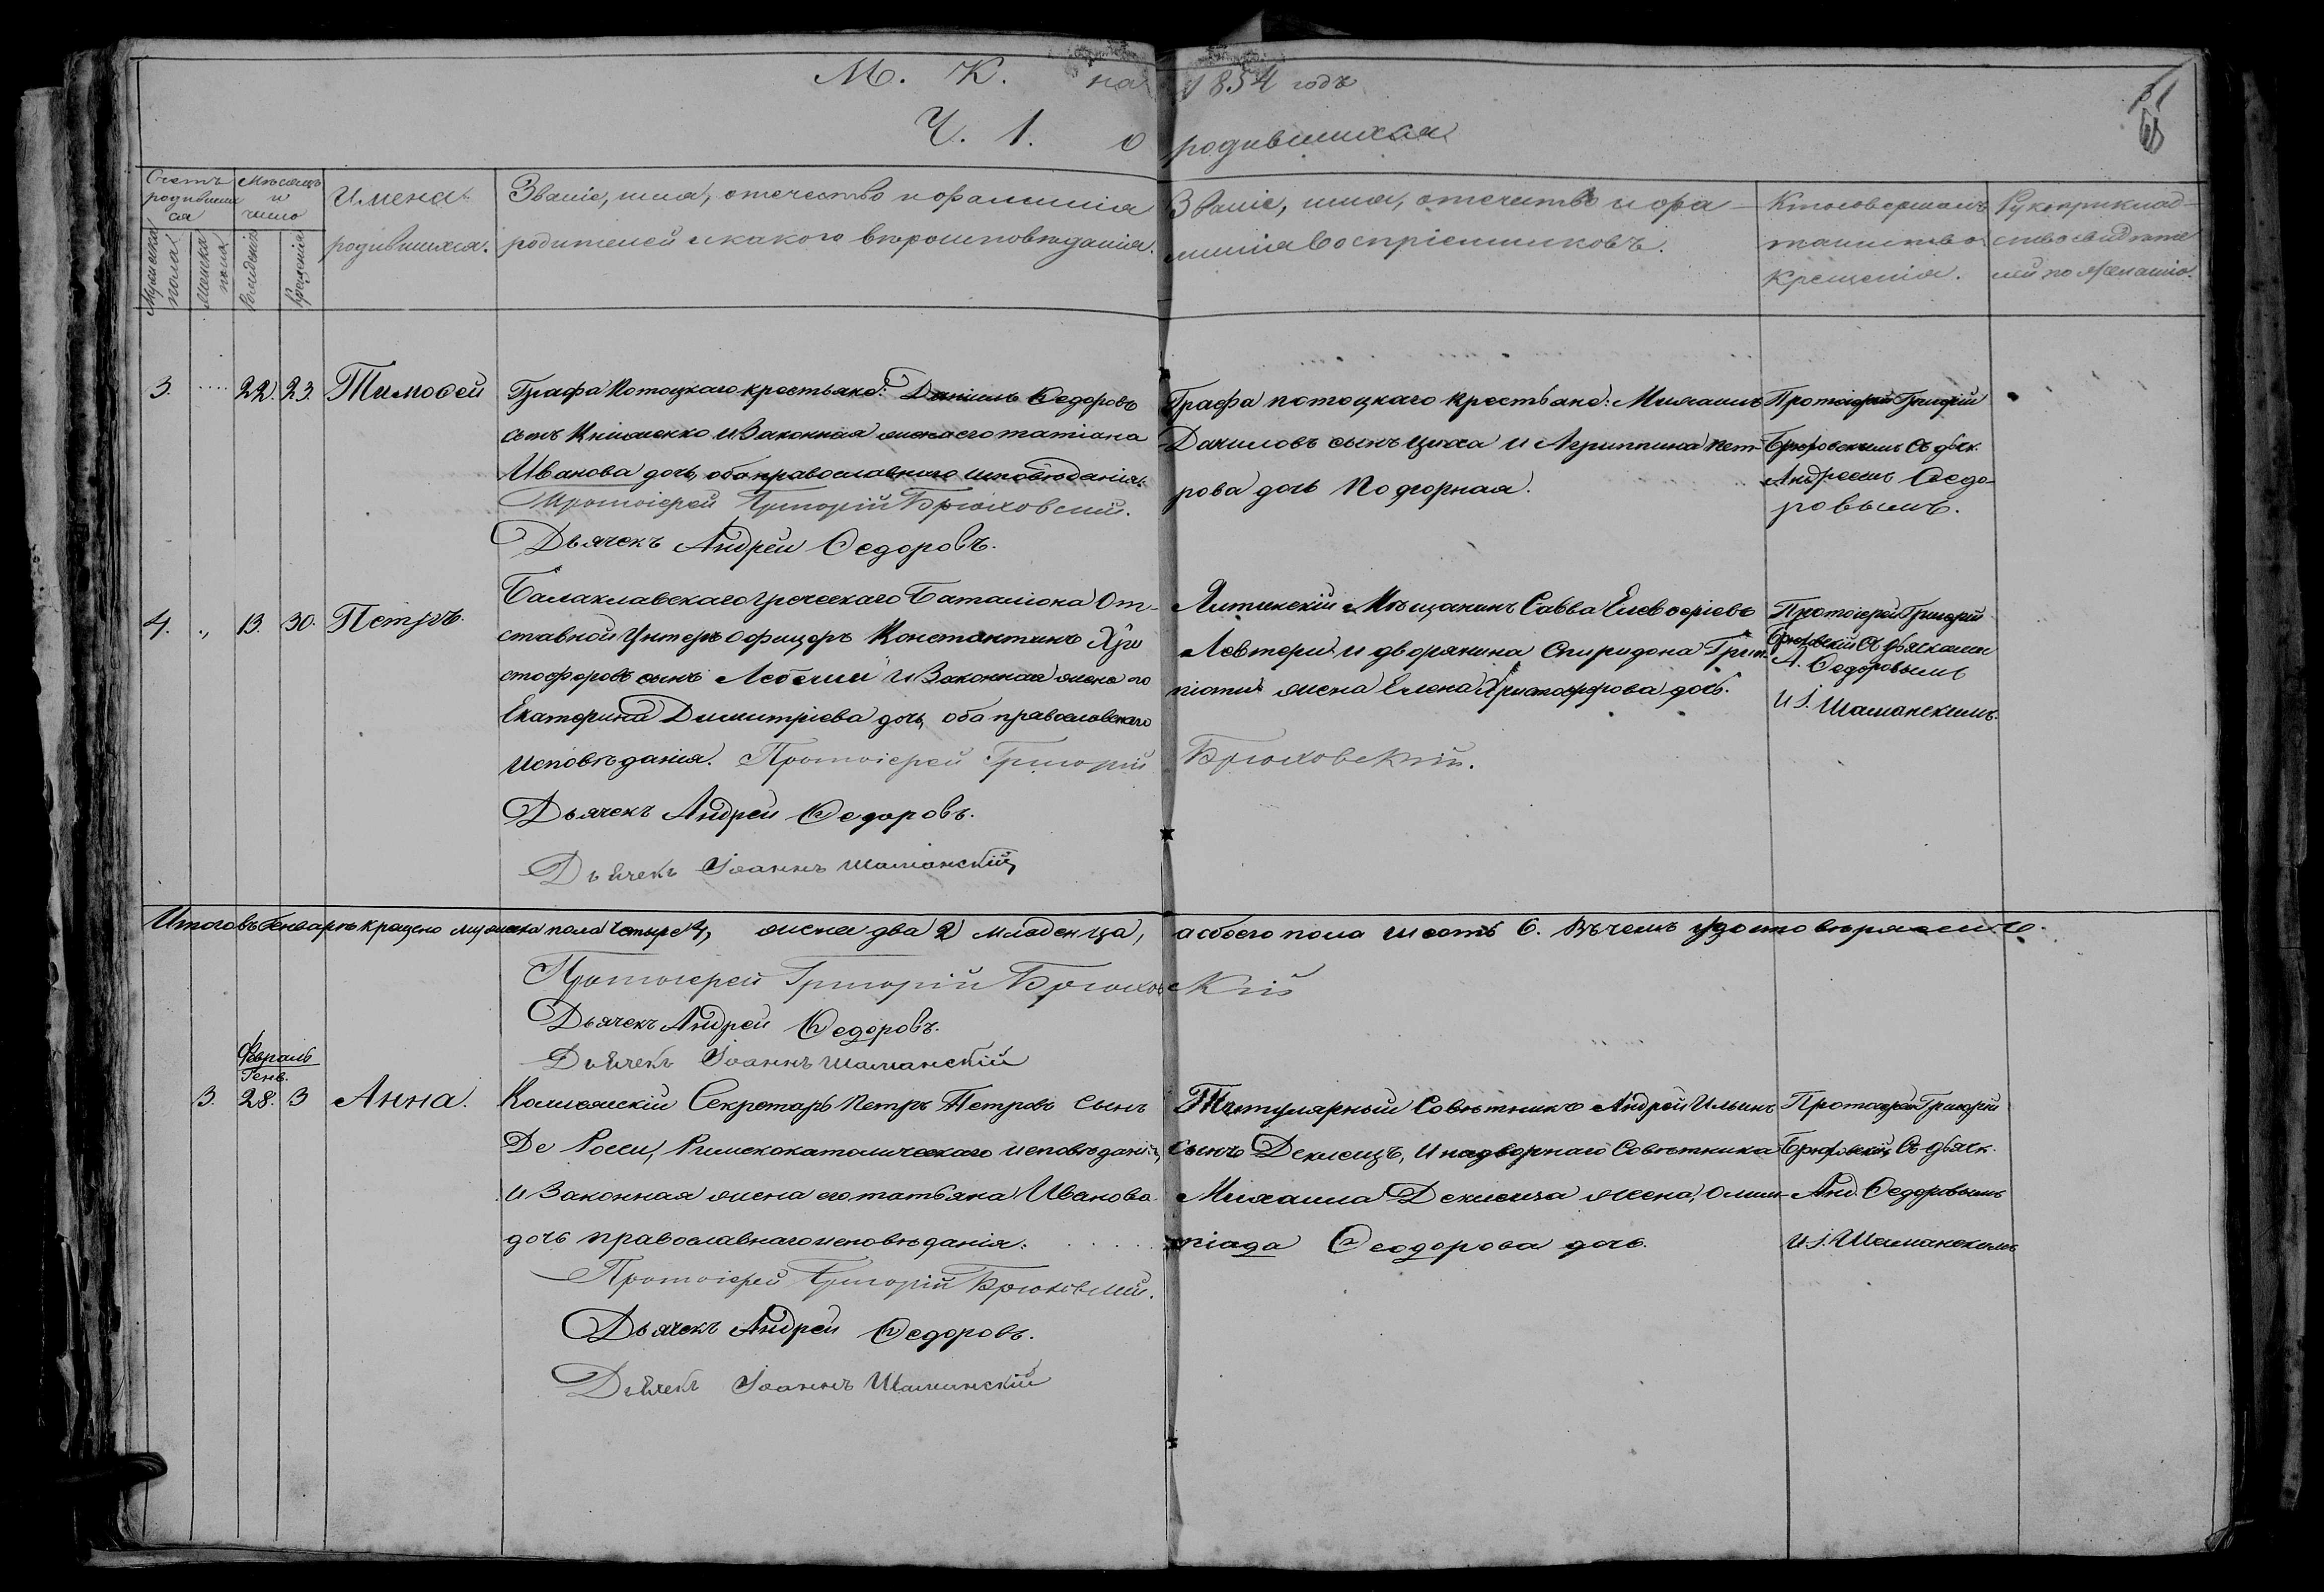 М. К. на 1854 годъ
Ч. 1. о родившихся
61
Счетъ родившихся
Мѣсяцъ и число
Имена родившихся.
Званіе, имя, отечество и фамилія
родителей и какого вѣроисповѣданія.
Званіе, имя, отечество и фа-
милія воспріемниковъ.
Кто совершалъ
таинство
крещенія.
Рукоприклад-
ство свидѣте
лей по желанію.
Мужеска пола
Женска пола
Рожденія
Крещенія
3. .... 22. 23. Тимоѳей
Графа Потоцкаго крестьяне: Даніилъ Ѳедоровъ
сынъ и Законная жена его татіана
Иванова дочь, оба православнаго исповѣданія.
Протоіерей Григорій Брюховскій.
Дьячекъ Андрей Ѳедоровъ.
Графа потоцкаго крестьяне: Михаилъ
Даниловъ сынъ Цыха и Агриппина Пет-
рова дочь Подгорная.
Протоіерей Григорій
Брюховскимъ Съ дьяч.
Андреемъ Ѳедо-
ровымъ.
4. „ 13. 30. Петръ.
Балаклавскаго греческаго Баталіона От-
ставной Унтеръ офицеръ Константинъ Хри
стофоровъ сынъ и Законная жена его
Екатерина Димитріева дочь, оба православнаго
исповѣданія. Протоіерей Григорій Брюховскій.
Дьячекъ Андрей Ѳедоровъ.
Дьячекъ Іоаннъ Шаманскій
Ялтинскій Мѣщанинъ Савва Елевѳеріевъ
Левтери и дворянина Спиридона
жена Елена Христофорова дочь.
Протоіерей Григорій
Брюховскій Съ дьячками
А. Ѳедоровымъ
и І. Шаманскимъ.
Итого въ Генварѣ крещено мужеска пола четыре 4, женска два 2 младенца, а обоего пола шесть 6. Въ чемъ удостовѣряемъ.
Протоіерей Григорій Брюховскій
Дьячекъ Андрей Ѳедоровъ.
Дьячекъ Іоаннъ Шаманскій
Февраль
Генв.
3. 28. 3 Анна.
Колежскій Секретарь Петръ Петровъ Сынъ
Де Росси, Римскокатолическаго исповѣданія,
и Законная жена его татьяна Иванова
дочь православнаго исповѣданія.
Протоіерей Григорій Брюховскій.
Дьячекъ Андрей Ѳедоровъ.
Дьячекъ Іоаннъ Шаманскій
Титулярный Совѣтникъ Андрей Ильинъ
сынъ и надворнаго Совѣтника
Михаила жена, Олим-
піада Ѳеодорова дочь.
Протоіерей Григорій
Брюховскій, Съ дьячк.
Анд. Ѳедоровымъ
и І. Шаманскимъ